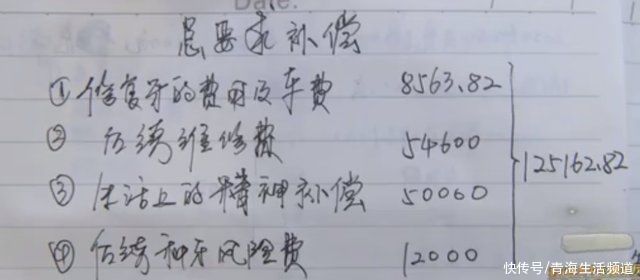 Date:
总要求补偿
①修复牙的费用及车费 8563.82
② 后续维修费 54600
③ 生活上的精神补偿 50000
125162.82
④ 后续种牙风险费 12000
快传号/青海生活频道